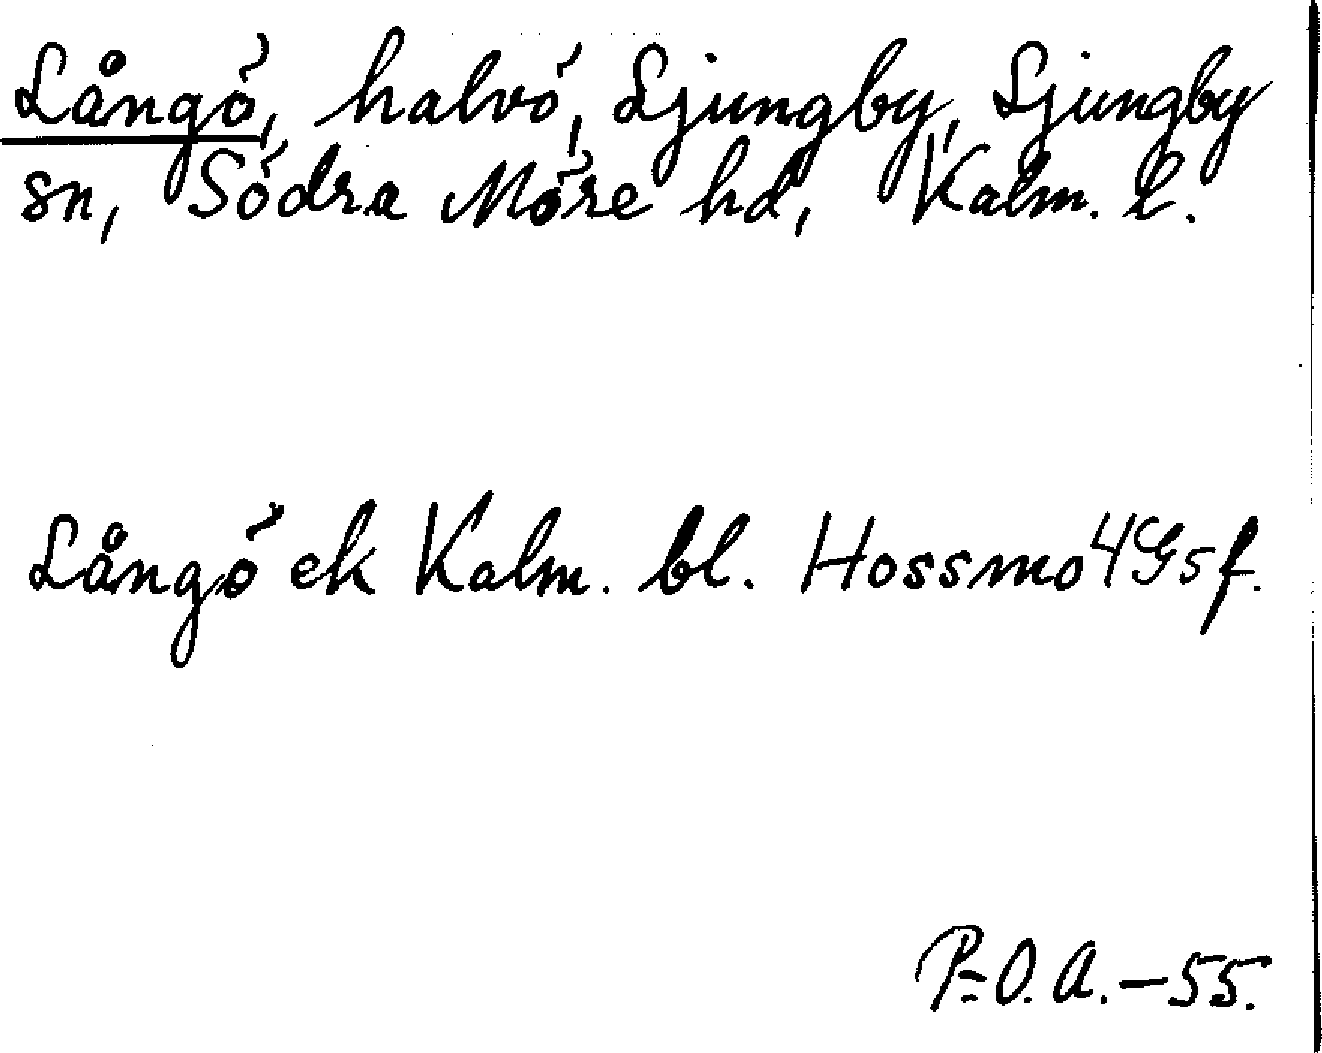 Långö, halvö, Ljungby, Ljungby
sn, Södra Möre hd, Kalm. l.
Långö ek Kalm. bl. Hossmo 4G5f.
P-O.A.-55.